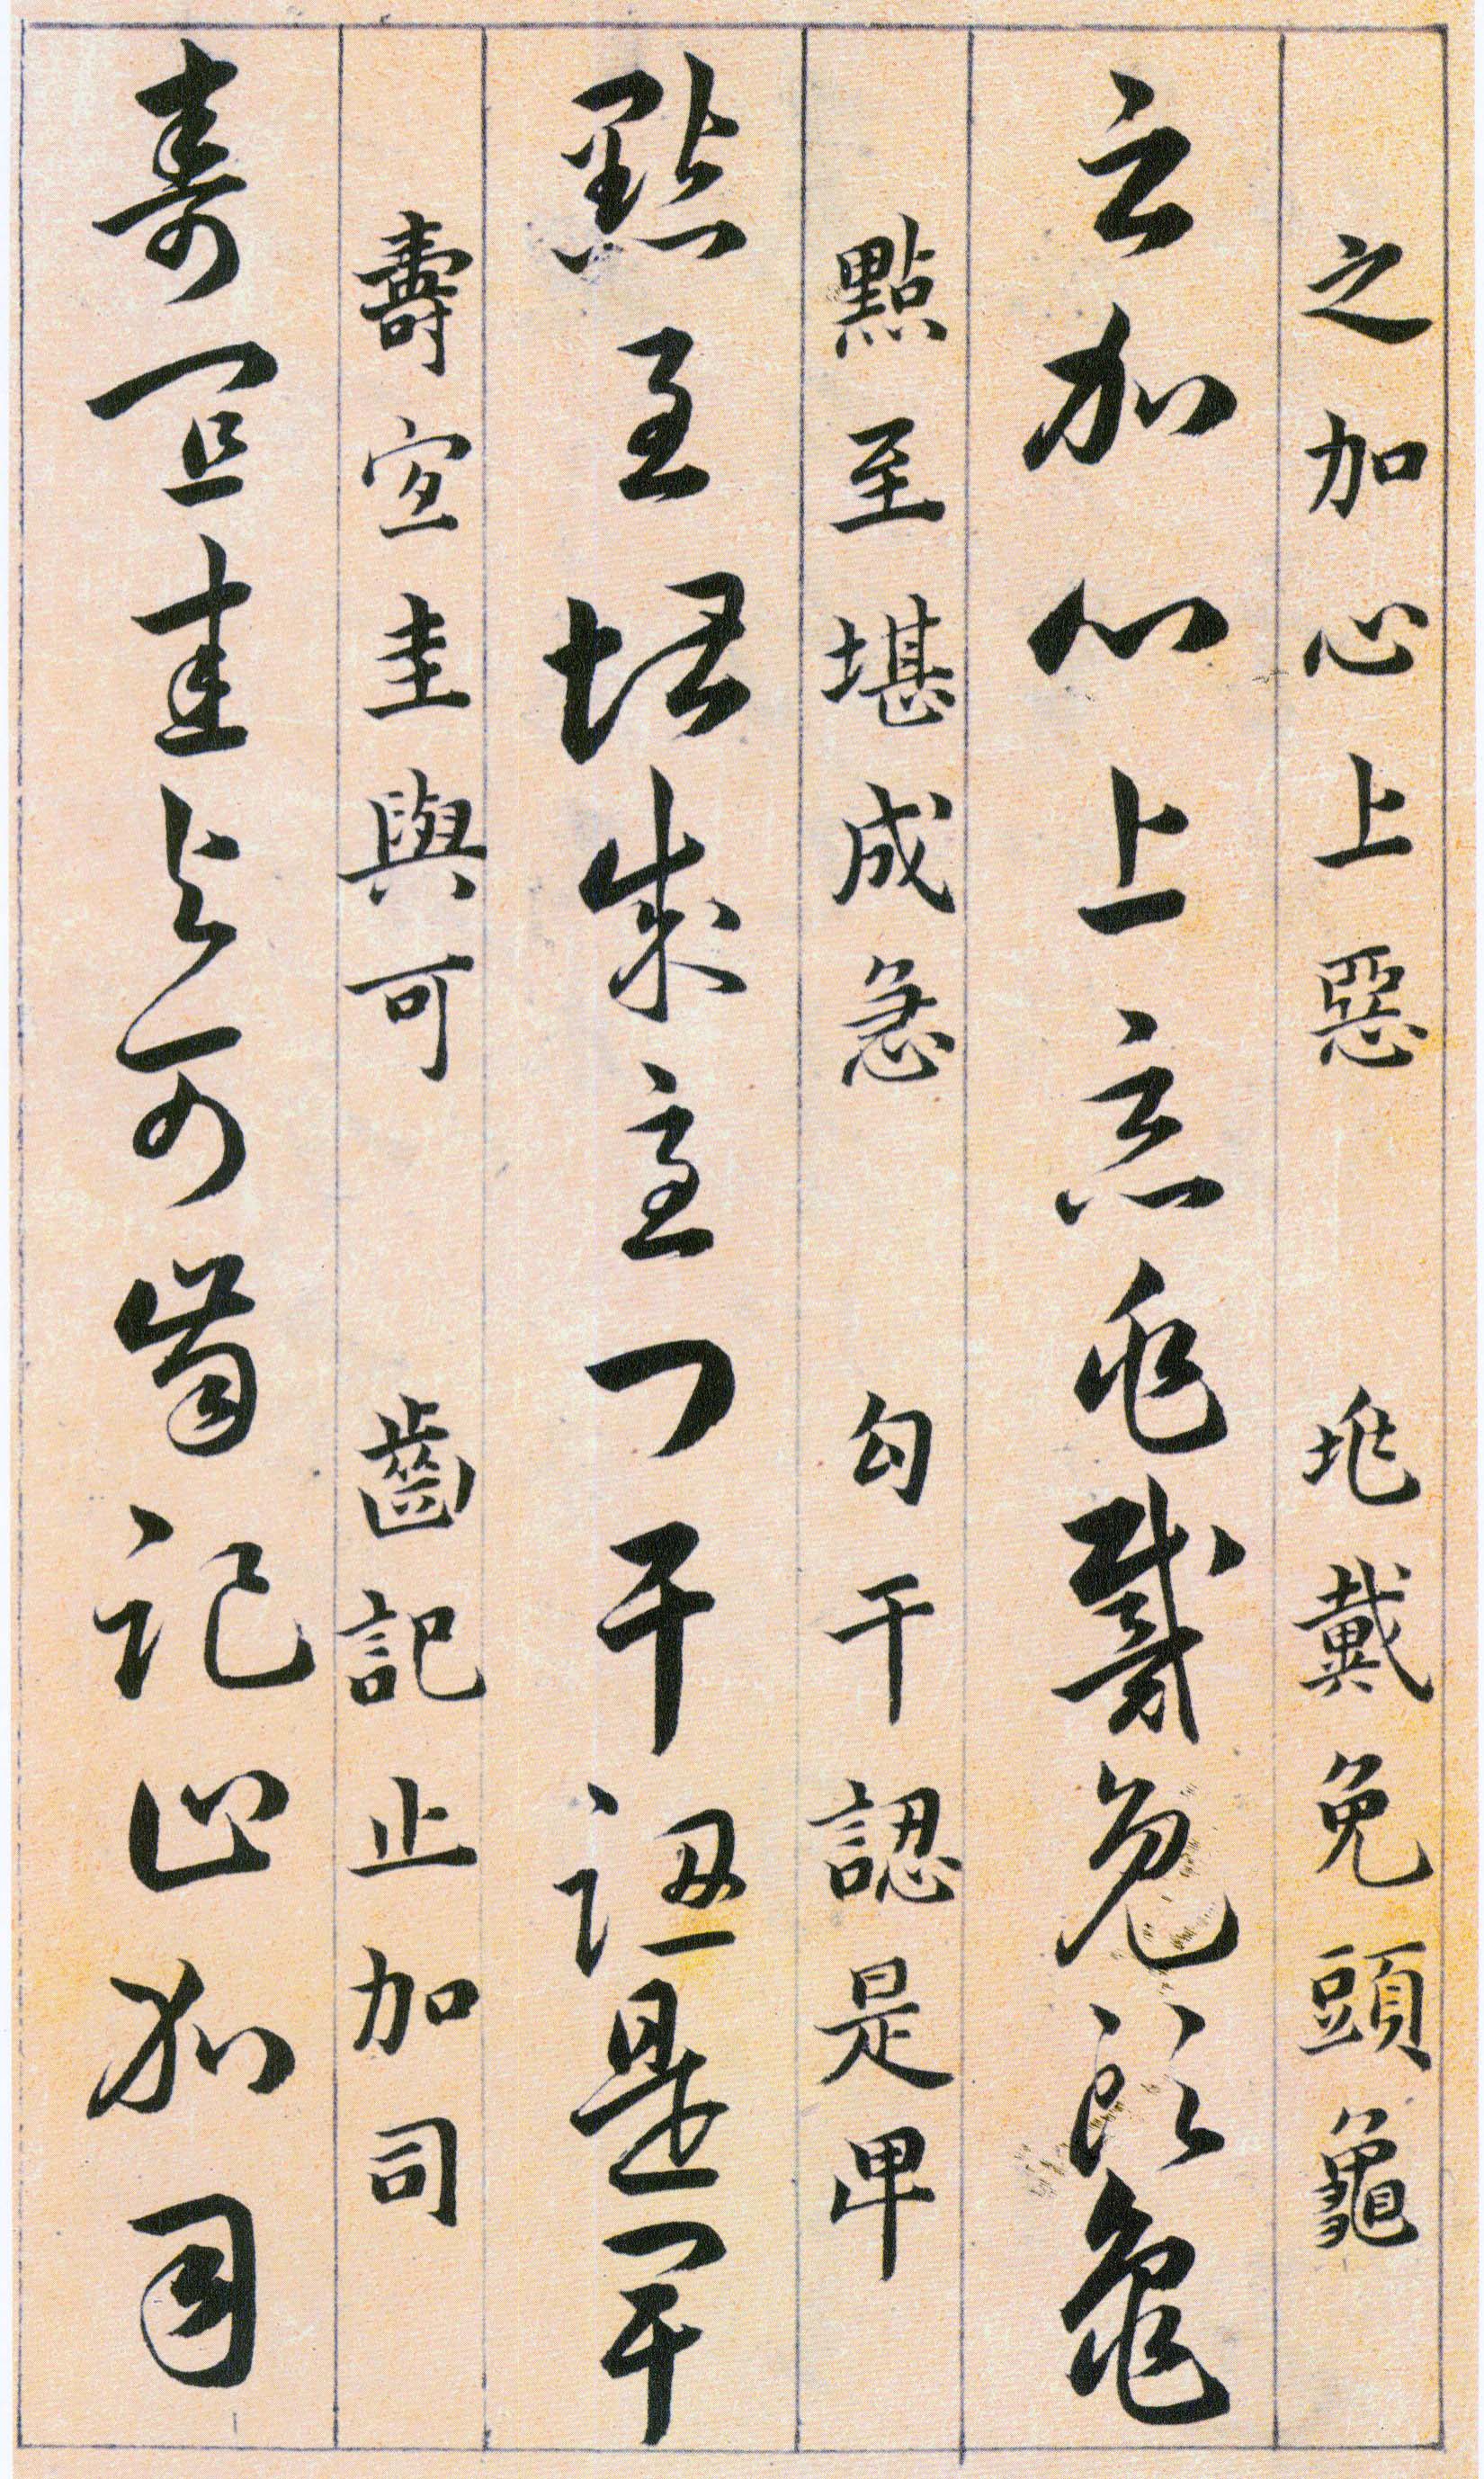 之加心上惡 戴免頭龜
之加心上惡戴免頭龜
點至堪成急 勾干認是卑
點至堪成急勾干認是卑
壽宜圭與可 齒記止加司
壽宜圭與可齒記止加司